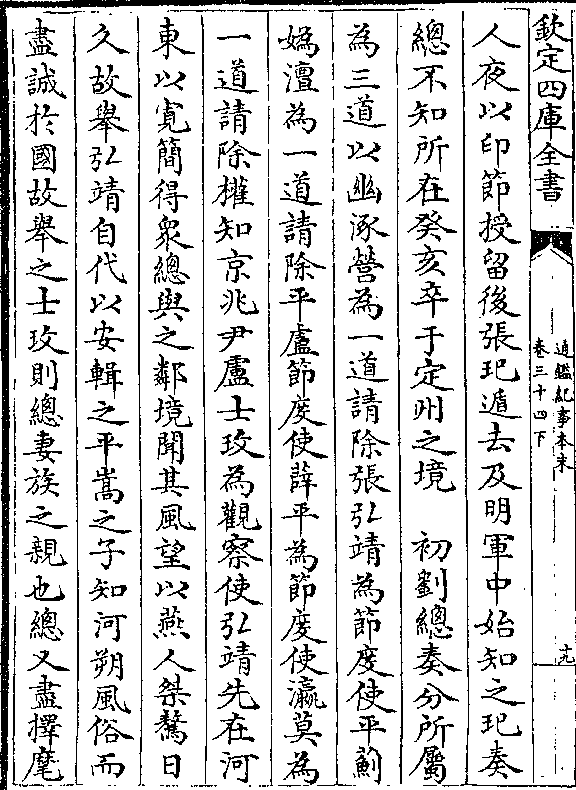 欽定四庫全書
通鑑紀事本末
卷三十四下
十九
人夜以印節授留後張玘遁去及明軍中始知之玘奏
總不知所在癸亥卒于定州之境　初劉總奏分所屬
為三道以幽涿營為一道請除張弘靖為節度使平薊
媯澶為一道請除平盧節度使薛平為節度使瀛莫為
一道請除權知京兆尹盧士玫為觀察使弘靖先在河
東以寛簡得衆總與之鄰境聞其風望以燕人桀驁日
久故舉弘靖自代以安輯之平嵩之子知河朔風俗而
盡誠於國故舉之士玫則總妻族之親也總又盡擇麾